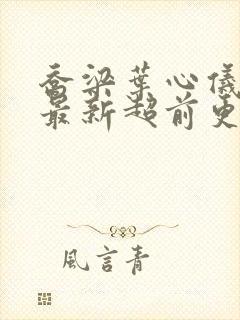 乔梁葉心儀
最新超前更
風言青